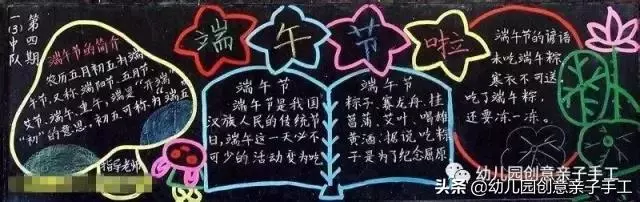 第四期
一(3)中队
端午节啦
端午节的简介
农历五月初五为端
午节,又称端阳节、五月节、
艾节、端午、重午,端是"开端"、
"初"的意思,初五可称为端五
指导老师
端午节
端午节是我国
汉族人民的传统节
日,端午这一天必不
可少的活动变为吃
端午节
粽子、赛龙舟、挂
菖蒲、艾叶、喝雄
黄酒;据说吃粽
子是为了纪念屈原
端午节的谚语
未吃端午粽,
寒衣不可送
吃了端午粽,
还要冻一冻。
幼儿园创意亲子手工
头条 @幼儿园创意亲子手工